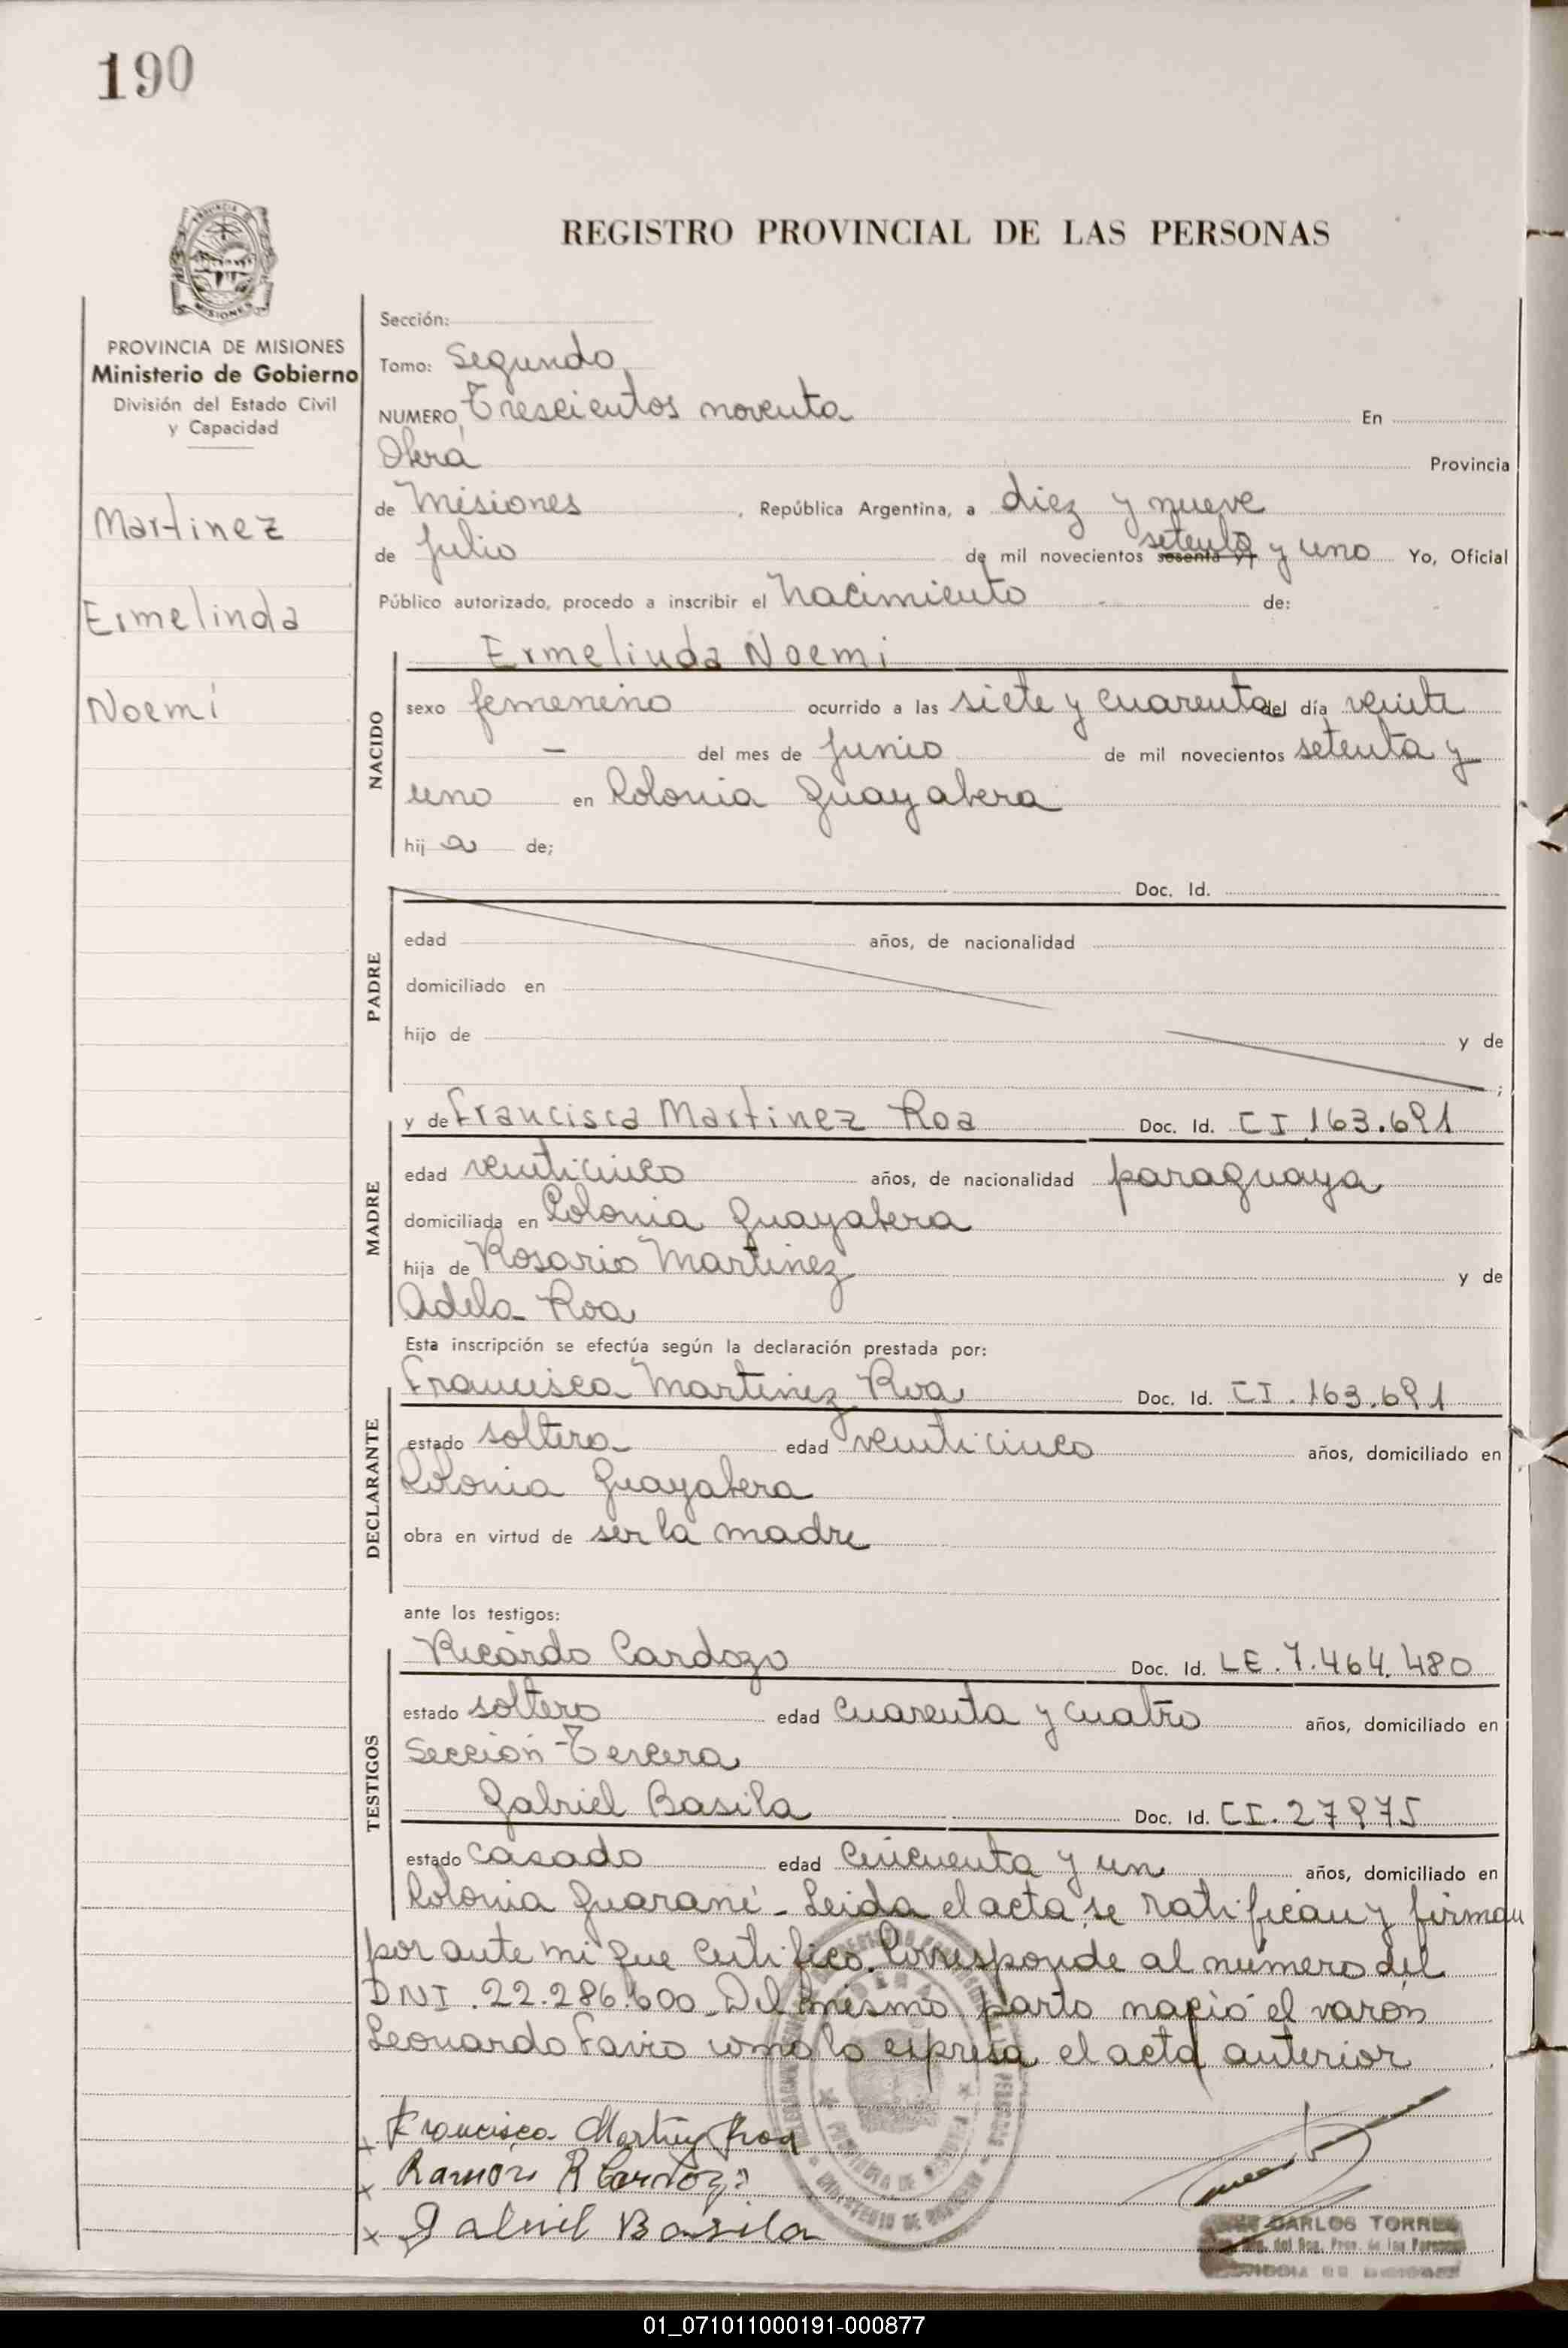 190
REGISTRO PROVINCIAL DE LAS PERSONAS
PROVINCIA DE MISIONES
Ministerio de Gobierno
División del Estado Civil
y Capacidad
Martinez
Ermelinda
Noemí
Sección:
Tomo: Segundo
NUMERO Trescientos noventa En
Oberá Provincia
de Misiones, República Argentina, a diez y nueve
de Julio de mil novecientos setenta sesenta y y uno Yo, Oficial
Público autorizado, procedo a inscribir el Nacimiento de:
NACIDO
Ermelinda Noemi
sexo femenino ocurrido a las siete y cuarenta del día veinte
— del mes de Junio de mil novecientos setenta y
uno en Colonia Guayabera
hij a de;
PADRE
Doc. Id.
edad años, de nacionalidad
domiciliado en
hijo de y de
;
MADRE
y de Francisca Martinez Roa Doc. Id. CI.163.691
edad veinticinco años, de nacionalidad paraguaya
domiciliada en Colonia Guayabera
hija de Rosario Martinez y de
Adela Roa
Esta inscripción se efectúa según la declaración prestada por:
DECLARANTE
Francisca Martinez Roa Doc. Id. CI.163.691
estado soltera edad veinticinco años, domiciliado en
Colonia Guayabera
obra en virtud de ser la madre
ante los testigos:
TESTIGOS
Ricardo Cardozo Doc. Id. LE.7.464.480
estado soltero edad cuarenta y cuatro años, domiciliado en
Sección Tercera
Gabriel Basila Doc. Id. CI.27975
estado casado edad cincuenta y un años, domiciliado en
Colonia Guaraní - Leida el acta se ratifican y firman
por ante mi que certifico. Corresponde al número del
DNI.22.286.600_Del mismo parto nació el varón
Leonardo Favio como lo expresa el acta anterior
x Francisca Martinez Roa
x Ramón R Cardozo
x Gabriel Basila
CARLOS TORRES
01_071011000191-000877